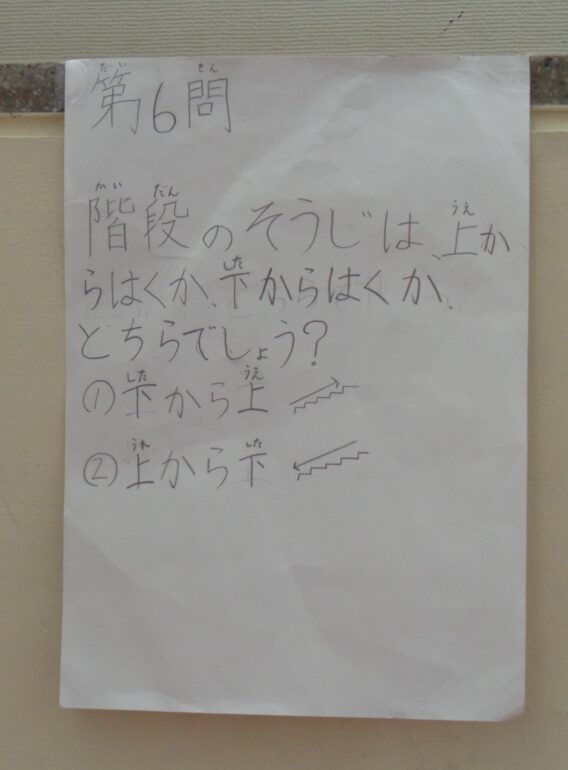 第6問
階段のそうじは、上か
らはくか、下からはくか、
どちらでしょう?
①下から上
②上から下